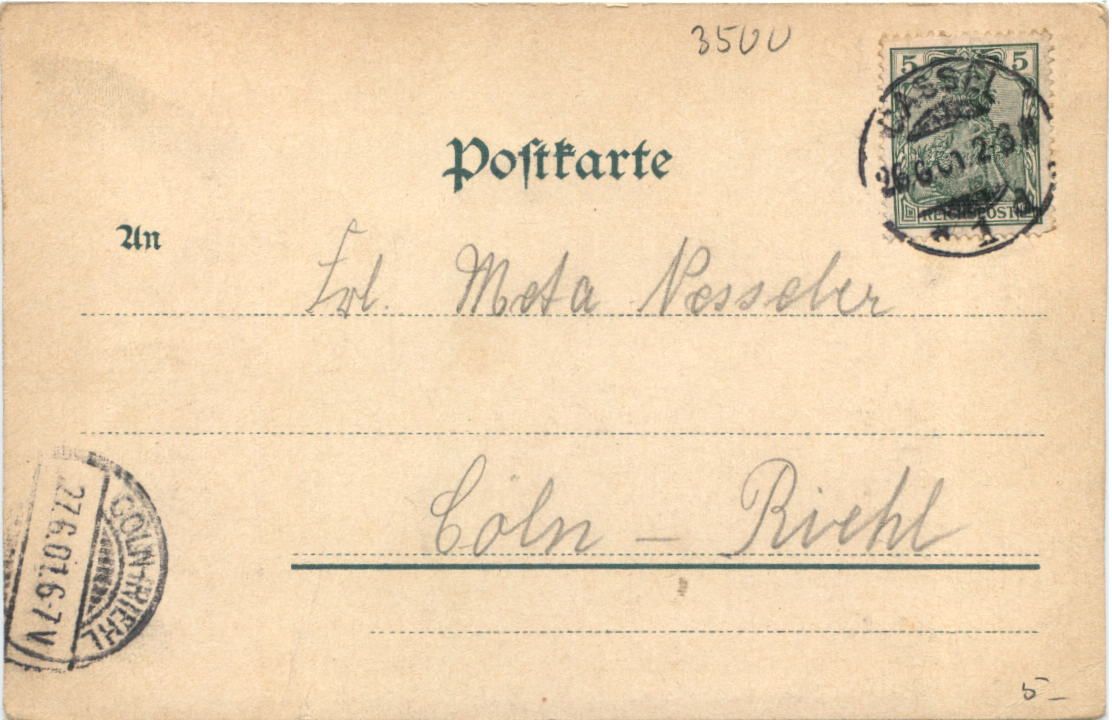 3500
5 5
CASSEL
26.6.01. 2-3 N
* 1 a
REICHSPOST
Postkarte
An
Frl. Meta Nesseler
Cöln - Riehl
CÖLN-RIEHL
27.6.01.6-7V
5-